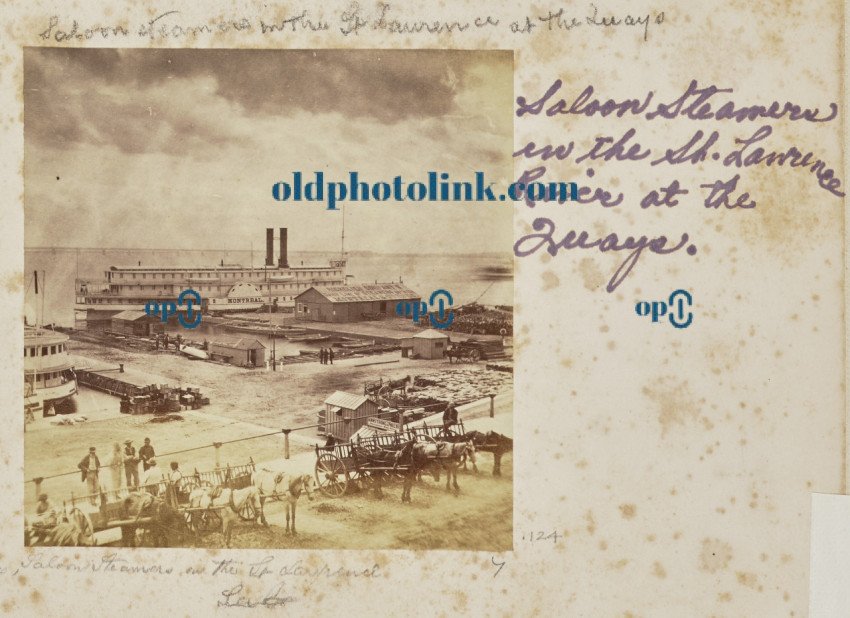 Saloon steamers in the St Lawrence at the Quays
Saloon Steamers
in the St. Lawrence
River at the
Quays.
oldphotolink.com
MONTREAL
opl
opl
opl
.124
Saloon Steamers on the St Lawrence
7